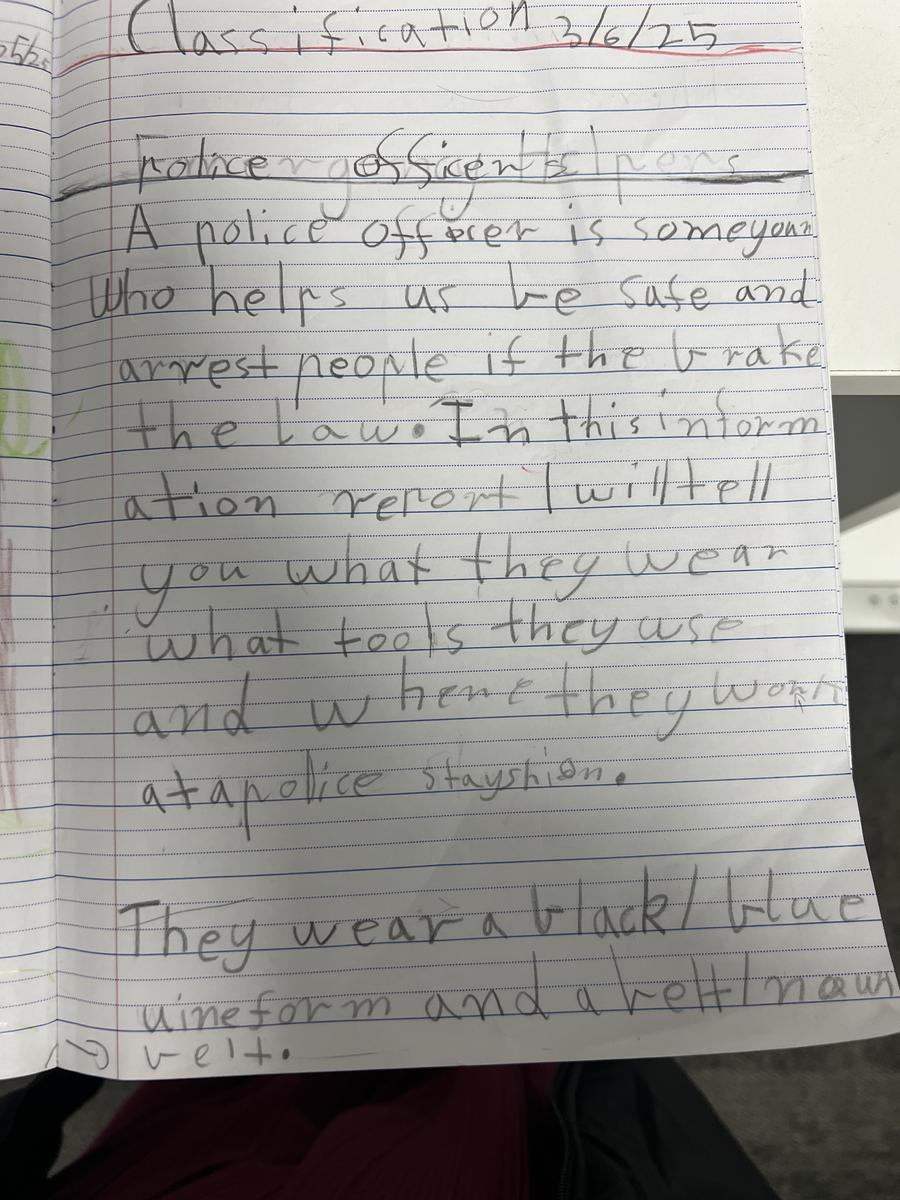 Classification 3/6/25
Police officer
A police officer is someyoun
Who helps us be safe and
arrest people if the brake
the Law. In this inform
ation report I will tell
you what they wear
what tools they use
and where they work
at a police stayshion.
They wear a black/blue
uineform and a belt/
→ velt.